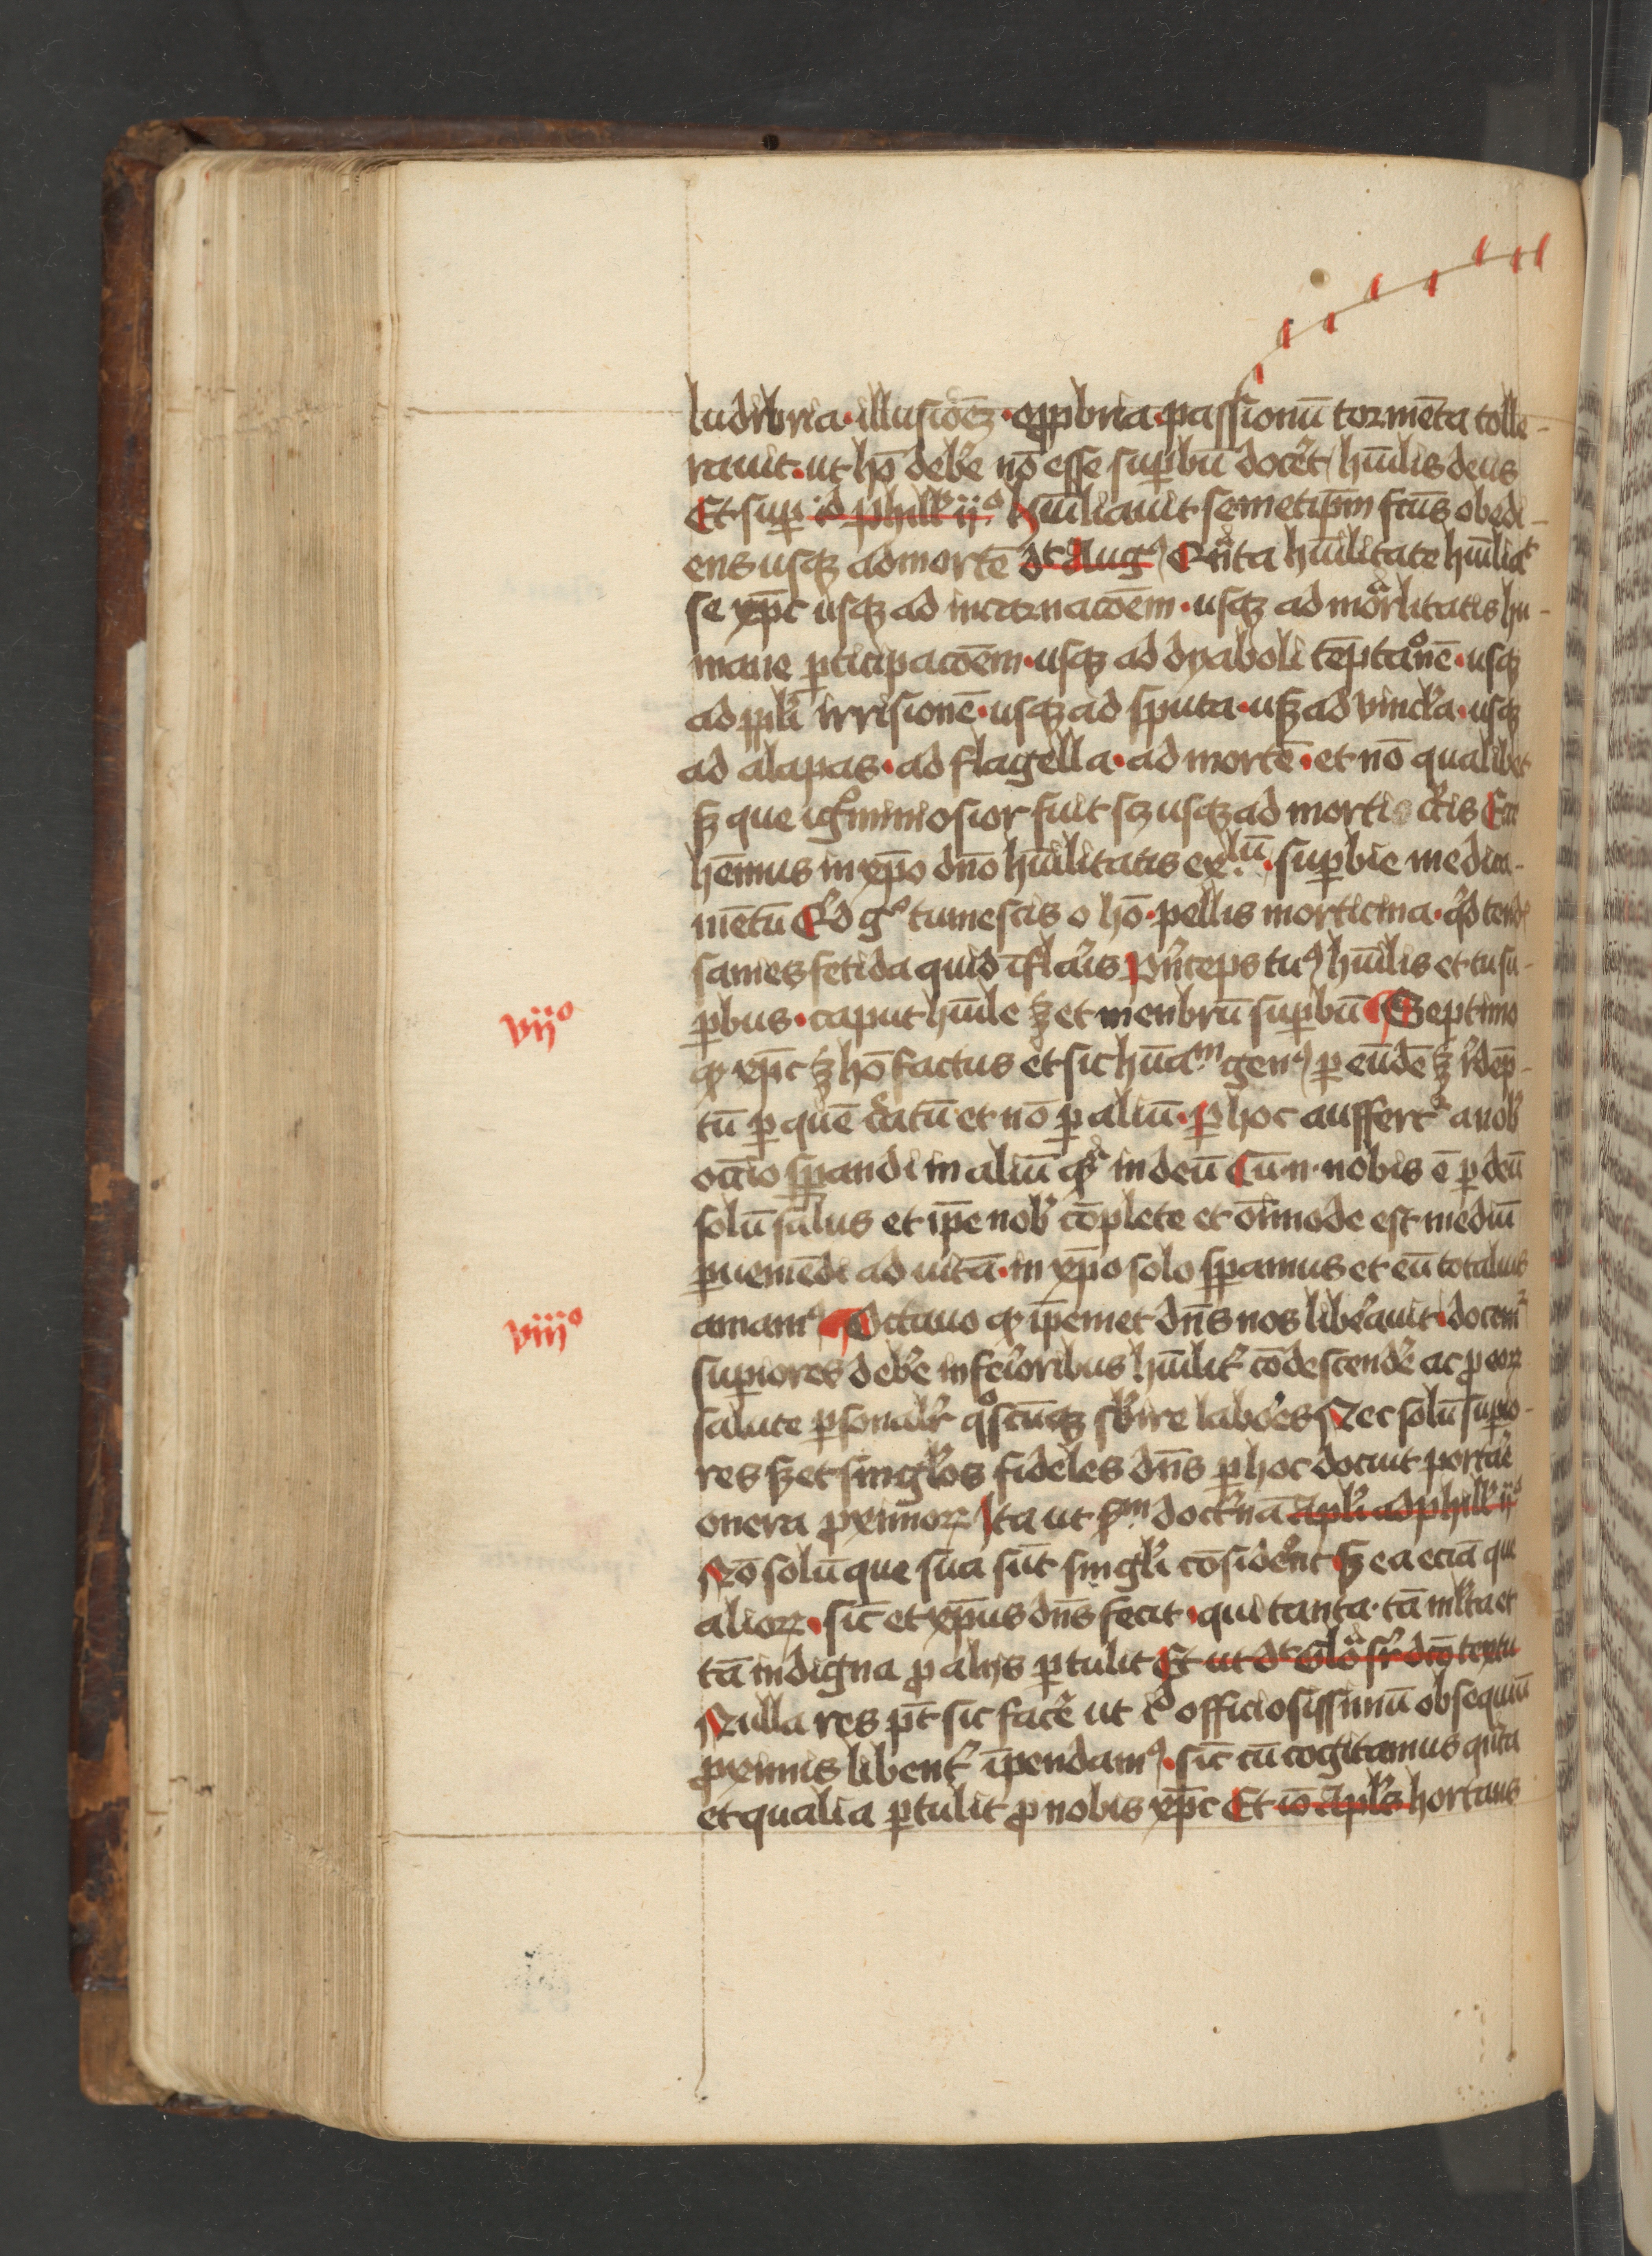 ludibria · illusiōeꝫ · opꝓbria · passionū tormēta tolle-
rauit · ut hō deb̄e nō esse suꝑbū docēt hūilis deus
Et suꝑ id phill' ij° hūiliauit semetip̄m fc̄us obedi-
ens usqꝫ ad mortē dt Aug9 Qnta hūilitate hūiliat
se xp̄c usqꝫ ad incarnacōem · usqꝫ ad morlitatis hu-
mane ꝑticipacōem · usqꝫ ad dyaboli tēptaone · usqꝫ
ad ppl'i irrisionē · usqꝫ ad sputa · usqꝫ ad vincl'a · usqꝫ
ad alapas · ad flagella · ad mortē · et nō qualibet
sꝫ que ig°miniosior fuit scꝫ usqꝫ ad mortis cr̄cis Ecce
hēmus in xp̄o dn̄o hūilitatis exlū · suꝑbie medica-
mētū Qd g° tumescis o hō · pellis morticina · q'd tend'
sanies fetida quid īflar̄is Pn̄ceps tu9 hūilis et tu su-
ꝑbus · caput hūile sꝫ et menbrū suꝑbū Septimo
vij°
qꝫ xp̄c sꝫ hō factus et sic hūam gen9 ꝑ eūdē sꝫ rdēp-
tū ꝑ quē c̄atū et nō ꝑ aliū · ꝑ hoc auffert a nob'
occīo sꝑandi in aliū qꝫ in deū Cū · n · nobis ē ꝑ deū
solū salus et ip̄e nob' cōplete et oīmode est mediū
ꝑueniēdi ad uitā · in xp̄o solo sꝑamus et eū totalius
amam9 Octauo qꝫ ip̄emet dn̄s nos lib'auit · docem
viij°
suꝑiores deb̄e inferioribus hūilit' cōdescend'e ac ꝓ eoꝝ
salute ꝑsonalr' q°scūqꝫ s'bire labōes Nec solū suꝑio-
res sꝫ et singl'os fideles dn̄s ꝑ hoc docuit portar̄e
onera ꝓximoꝝ Ita ut sm doct'nā apl'i ad phill' ij°
Nō solū que sua sūt singl'i cōsiderēt sꝫ ea eciā que
alioꝝ · sic̄ et xp̄us dn̄s fecit · qui tanta · tā ml'ta et
tā indigna ꝓ alijs ꝑtulit Et ut dt Glo sr dc̄o textu
Nulla res pt̄ sic facē ut officiosissimū obsequiū
ꝓximis libent' īpendam9 · sic̄ cū cogitamus qn̄ta
et qualia ꝑtulit ꝓ nobis xp̄c Et iō Apl's hortans